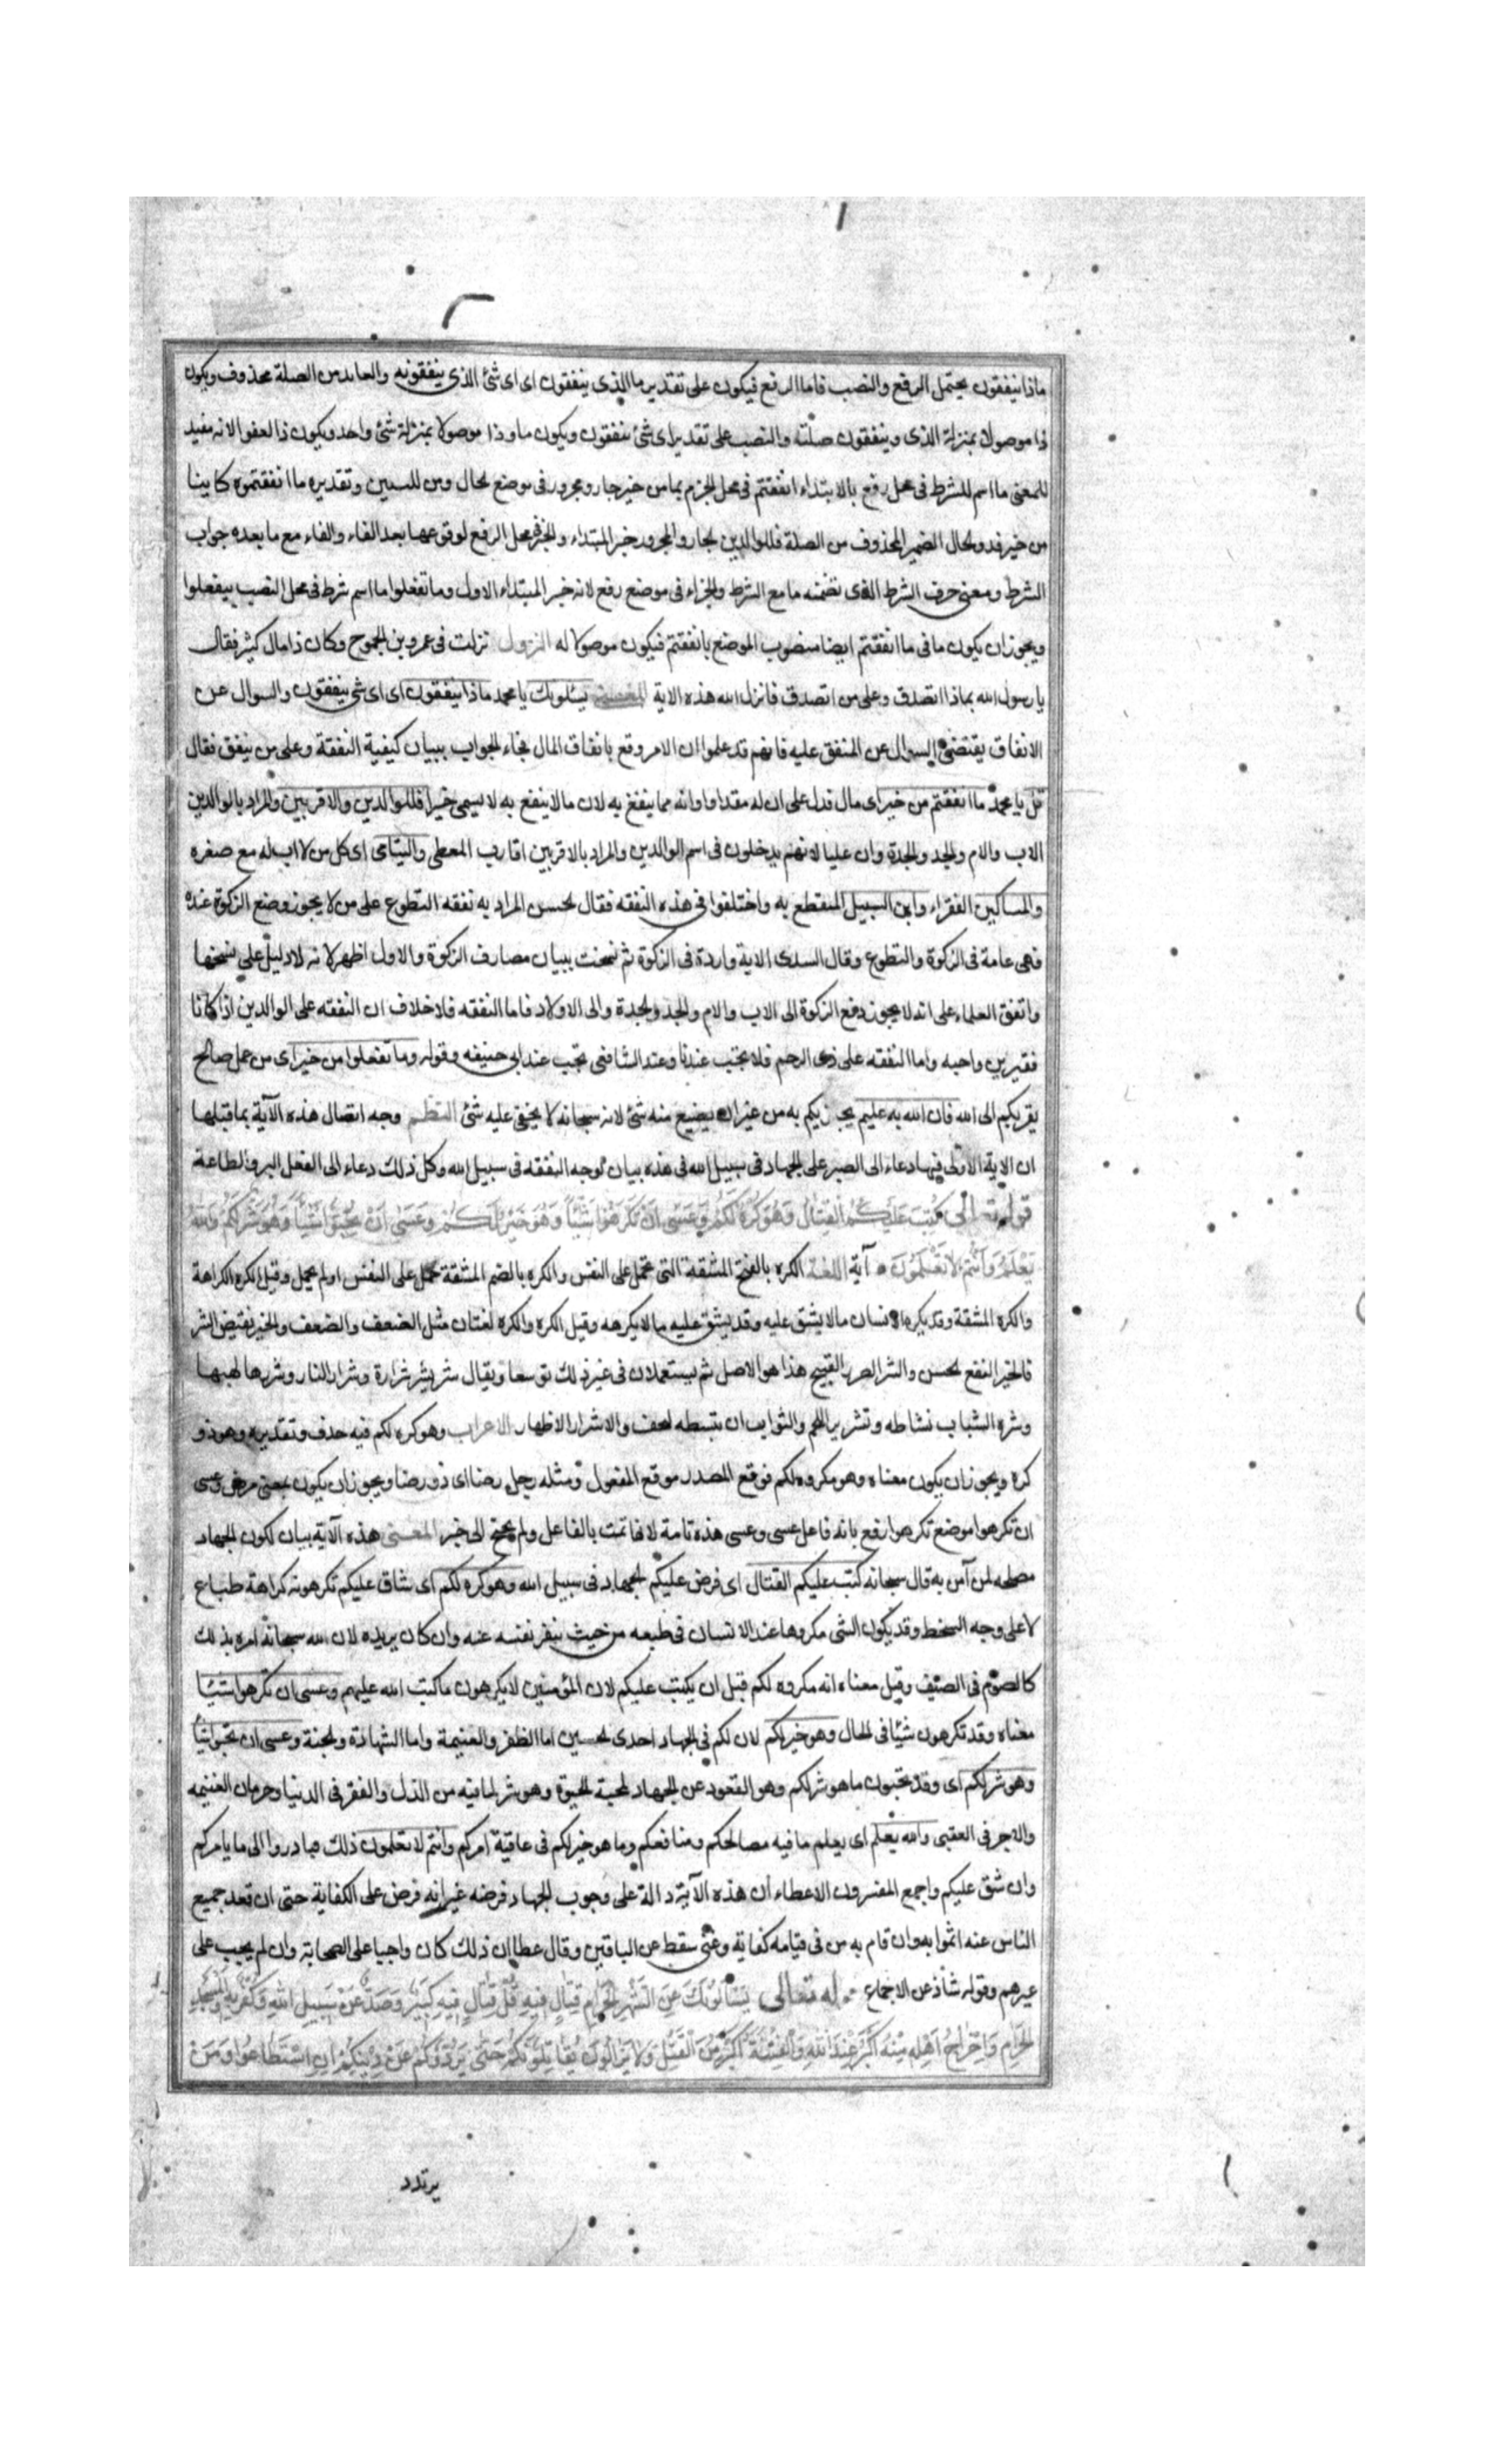 ماذا ينفقون يحتمل الرفع والنصب فاما الرفع فيكون على تقدير ما الذى ينفقون اى اى شئ الذى ينفقونه والعايد من الصلة محذوف ويكون
ذا موصولا بمنزلة الذى وينفقون صلته والنصب على تقدير اى شئ ينفقون ويكون ما وذا موصولا بمنزلة شئ واحد ويكون ذا لغوا لانه مفيد
للمعنى ما اسم للشرط فى محل رفع بالابتداء انفقتم فى محل الجزم بما من خير جار ومجرور فى موضع لحال ومن للتبيين وتقديره ما انفقتموه كاينا
من خير فذو لحال الضمير المحذوف من الصلة فللوالدين لجار والمجرور خبر المبتداء ولجزء محل الرفع لوقوعها بعد الفاء والفاء مع ما بعده جواب
الشرط ومعنى حرف الشرط الذى تضمنه ما مع الشرط والجزاء فى موضع رفع لانه خبر المبتداء الاول وما تفعلوا ما اسم شرط فى محل النصب بيفعلوا
ويجوز ان يكون ما فى ما انفقتم ايضا منصوب الموضع بانفقتم فيكون موصولا له النزول نزلت فى عمرو بن الجموح وكان ذا مال كثير فقال
يا رسول الله بماذا اتصدق وعلى من اتصدق فانزل الله هذه الاية المعنى يسئلونك يا محمد ماذا ينفقون اى اى شئ ينفقون والسوال عن
الانفاق يقتضى السوال عن المنفق عليه فانهم قد علموا ان الامر وقع بانفاق المال فجاء الجواب ببيان كيفية النفقة وعلى من ينفق فقال
قل يا محمد ما انفقتم من خير اى مال فدل على ان له مقدارا وانه مما ينفع به لان ما لا ينفع به لا يسمى خيرا فللوالدين والاقربين والمراد بالوالدين
الاب والام ولجد ولجدة وان عليا لانهم يدخلون فى اسم الوالدين والمراد بالاقربين اقارب المعطى واليتامى اى كل من لا اب له مع صغره
والمساكين الفقراء وابن السبيل المنقطع به واختلفوا فى هذه النفقه فقال لحسن المراد به نفقه التطوع على من لا يجوز وضع الزكوة عنده
فهى عامة فى الزكوة والتطوع وقال السدى الاية واردة فى الزكوة ثم نسخت ببيان مصارف الزكوة والاول اظهر لانه لا دليل على نسخها
واتفق العلماء على انه لا يجوز دفع الزكوة الى الاب والام ولجد ولجدة والى الاولاد فاما النفقه فلا خلاف ان النفقه على الوالدين اذا كانا
فقيرين واجبه واما النفقه على ذى الرحم فلا تجب عندنا وعند الشافنى تجب عند ابى حنيفه وقوله وما تفعلوا من خير اى من عمل صالح
يقربكم الى الله فان الله به عليم يجازيكم به من غير ان يضيع منه شئ لانه سبحانه لا يخفى عليه شئ النظم وجه اتصال هذه الآية بما قبلها
ان الاية الاولى فيها دعاء الى الصبر على الجهاد فى سبيل الله فى هذه بيان لوجه النفقه فى سبيل الله وكل ذلك دعاء الى الفعل البر والطاعة
قوله تعالى كُتِبَ عَلَيْكُمُ الْقِتَالُ وَهُوَ كُرْهٌ لَكُمْ وَعَسَى اَنْ تَكْرَهُوا شَيْئاً وَهُوَ خَيْرٌ لَكُمْ وَعَسَى اَنْ تُحِبُّوا شَيْئاً وَهُوَ شَرٌّ لَكُمْ وَاللهُ
يَعْلَمُ وَاَنْتُمْ لَا تَعْلَمُونَ آية اللغة الكره بالفتح المشقة التى تحمل على النفس والكره بالضم المشقة تحمل على النفس او لم يحمل وقيل الكره الكراهة
والكره المشقة وقد يكره الانسان ما لا يشق عليه وقد يشق عليه ما لا يكرهه وقيل الكره والكره لغتان مثل الضعف والضعف والخير نقيض الشر
فالخير النفع لحسن والشر الضرر القبيح هذا هو الاصل ثم يستعملان فى غير ذلك توسعا ويقال شر يشر شرارة وشرار النار وشررها لهبها
وشرة الشباب نشاطه وتشرير اللحم والثواب ان تبسطه لجف والاشرار الاظهار الاعراب وهو كره لكم فيه حذف وتقديره وهو ذو
كره ويجوز ان يكون معناه وهو مكروه لكم فوقع المصدر موقع المفعول ومثله رجل رضا اى ذو رضا ويجوز ان يكون بمعنى مرضى وعسى
ان تكرهوا موضع تكرهوا رفع بانه فاعل عسى وعسى هذه تامة لانها تمت بالفاعل ولم يحتج الى خبر المعنى هذه الآية بيان لكون الجهاد
مصلحه لمن آمن به قال سبحانه كتب عليكم القتال اى فرض عليكم لجهاد فى سبيل الله وهو كره لكم اى شاق عليكم تكرهونه كراهة طباع
لا على وجه السخط وقد يكون الشى مكروها عند الانسان فى طبعه من حيث ينفر نفسه عنه وان كان يريده لان الله سبحانه امره بذلك
كالصوم فى الصيف وقيل معناه انه مكروه لكم قبل ان يكتب عليكم لان المؤمنين لا يكرهون ما كتب الله عليهم وعسى ان تكرهوا شيئا
معناه وقد تكرهون شيئا فى لحال وهو خير لكم لان لكم فى الجهاد احدى لحسنيين اما الظفر والغنيمة واما الشهادة ولجنة وعسى ان تحبوا شيئا
وهو شر لكم اى وقد تحبون ما هو شر لكم وهو القعود عن الجهاد لمحبة لحيوة وهو شر لما فيه من الذل والفقر فى الدنيا وحرمان الغنيمه
والاجر فى العقبى والله يعلم اى يعلم ما فيه مصالحكم ومنافعكم وما هو خير لكم فى عاقبة امركم وانتم لا تعلمون ذلك فبادروا الى ما يامركم
وان شق عليكم واجمع المفسرون الا عطاء ان هذه الآية دالة على وجوب الجهاد فرضه غير انه فرض على الكفاية حتى ان قعد جميع
الناس عنه اثموا به وان قام به من فى قيامه كفاية وغنى سقط عن الباقين وقال عطا ان ذلك كان واجبا على الصحابة وان لم يجب على
غيرهم وقوله شاذ عن الاجماع قوله تعالى يَسْأَلُونَكَ عَنِ الشَّهْرِ الْحَرَامِ قِتَالٍ فِيهِ قُلْ قِتَالٌ فِيهِ كَبِيرٌ وَصَدٌّ عَنْ سَبِيلِ اللهِ وَكُفْرٌ بِهِ وَالْمَسْجِدِ
الْحَرَامِ وَاِخْرَاجُ اَهْلِهِ مِنْهُ اَكْبَرُ عِنْدَ اللهِ وَالْفِتْنَةُ اَكْبَرُ مِنَ الْقَتْلِ وَلَا يَزَالُونَ يُقَاتِلُونَكُمْ حَتَّى يَرُدُّوكُمْ عَنْ دِينِكُمْ اِنِ اسْتَطَاعُوا وَمَنْ
يرتدد